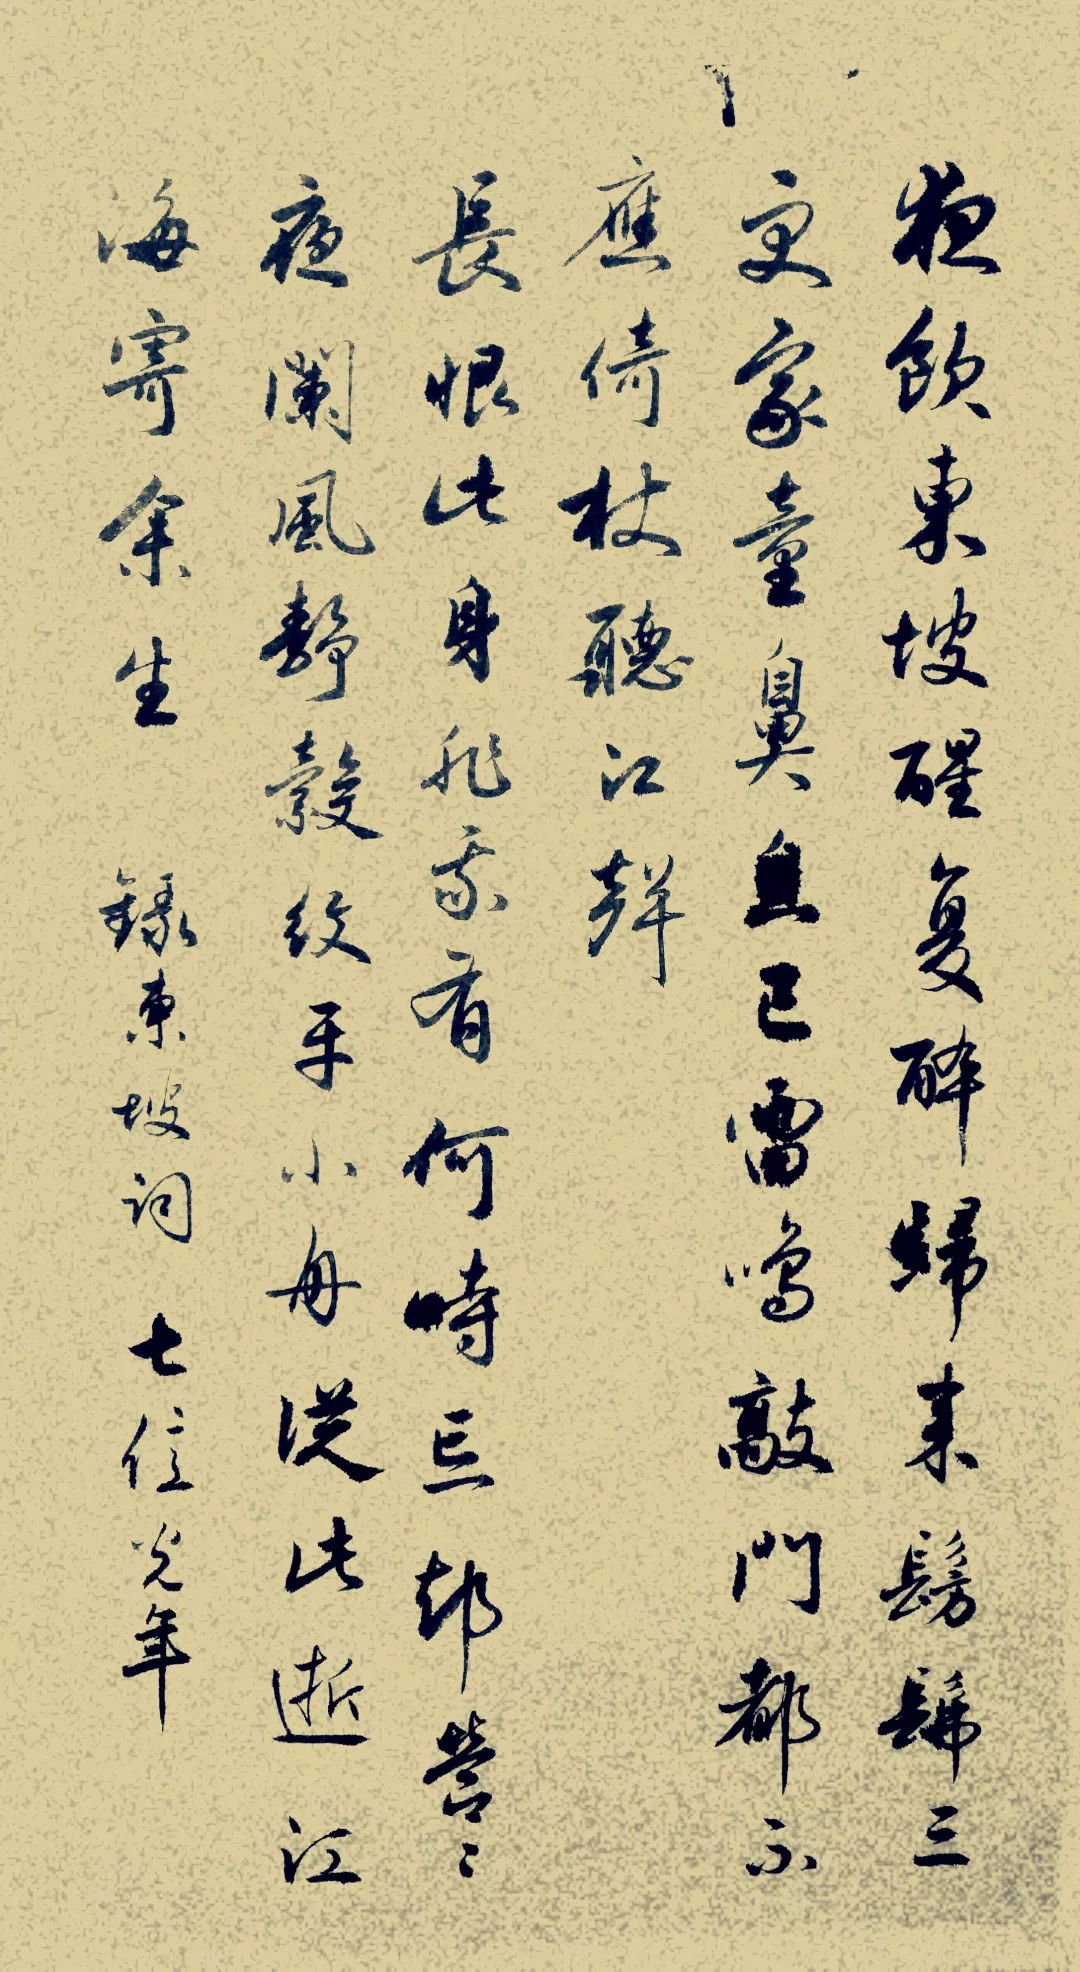 夜飲東坡醒复醉歸来髣髴三
更家童鼻息已雷鳴敲門都不
應倚杖聽江聲
長恨此身非我有何時忘却營〻
夜瀾風靜縠紋平小舟從此逝江
海寄余生 錄東坡詞 七光年